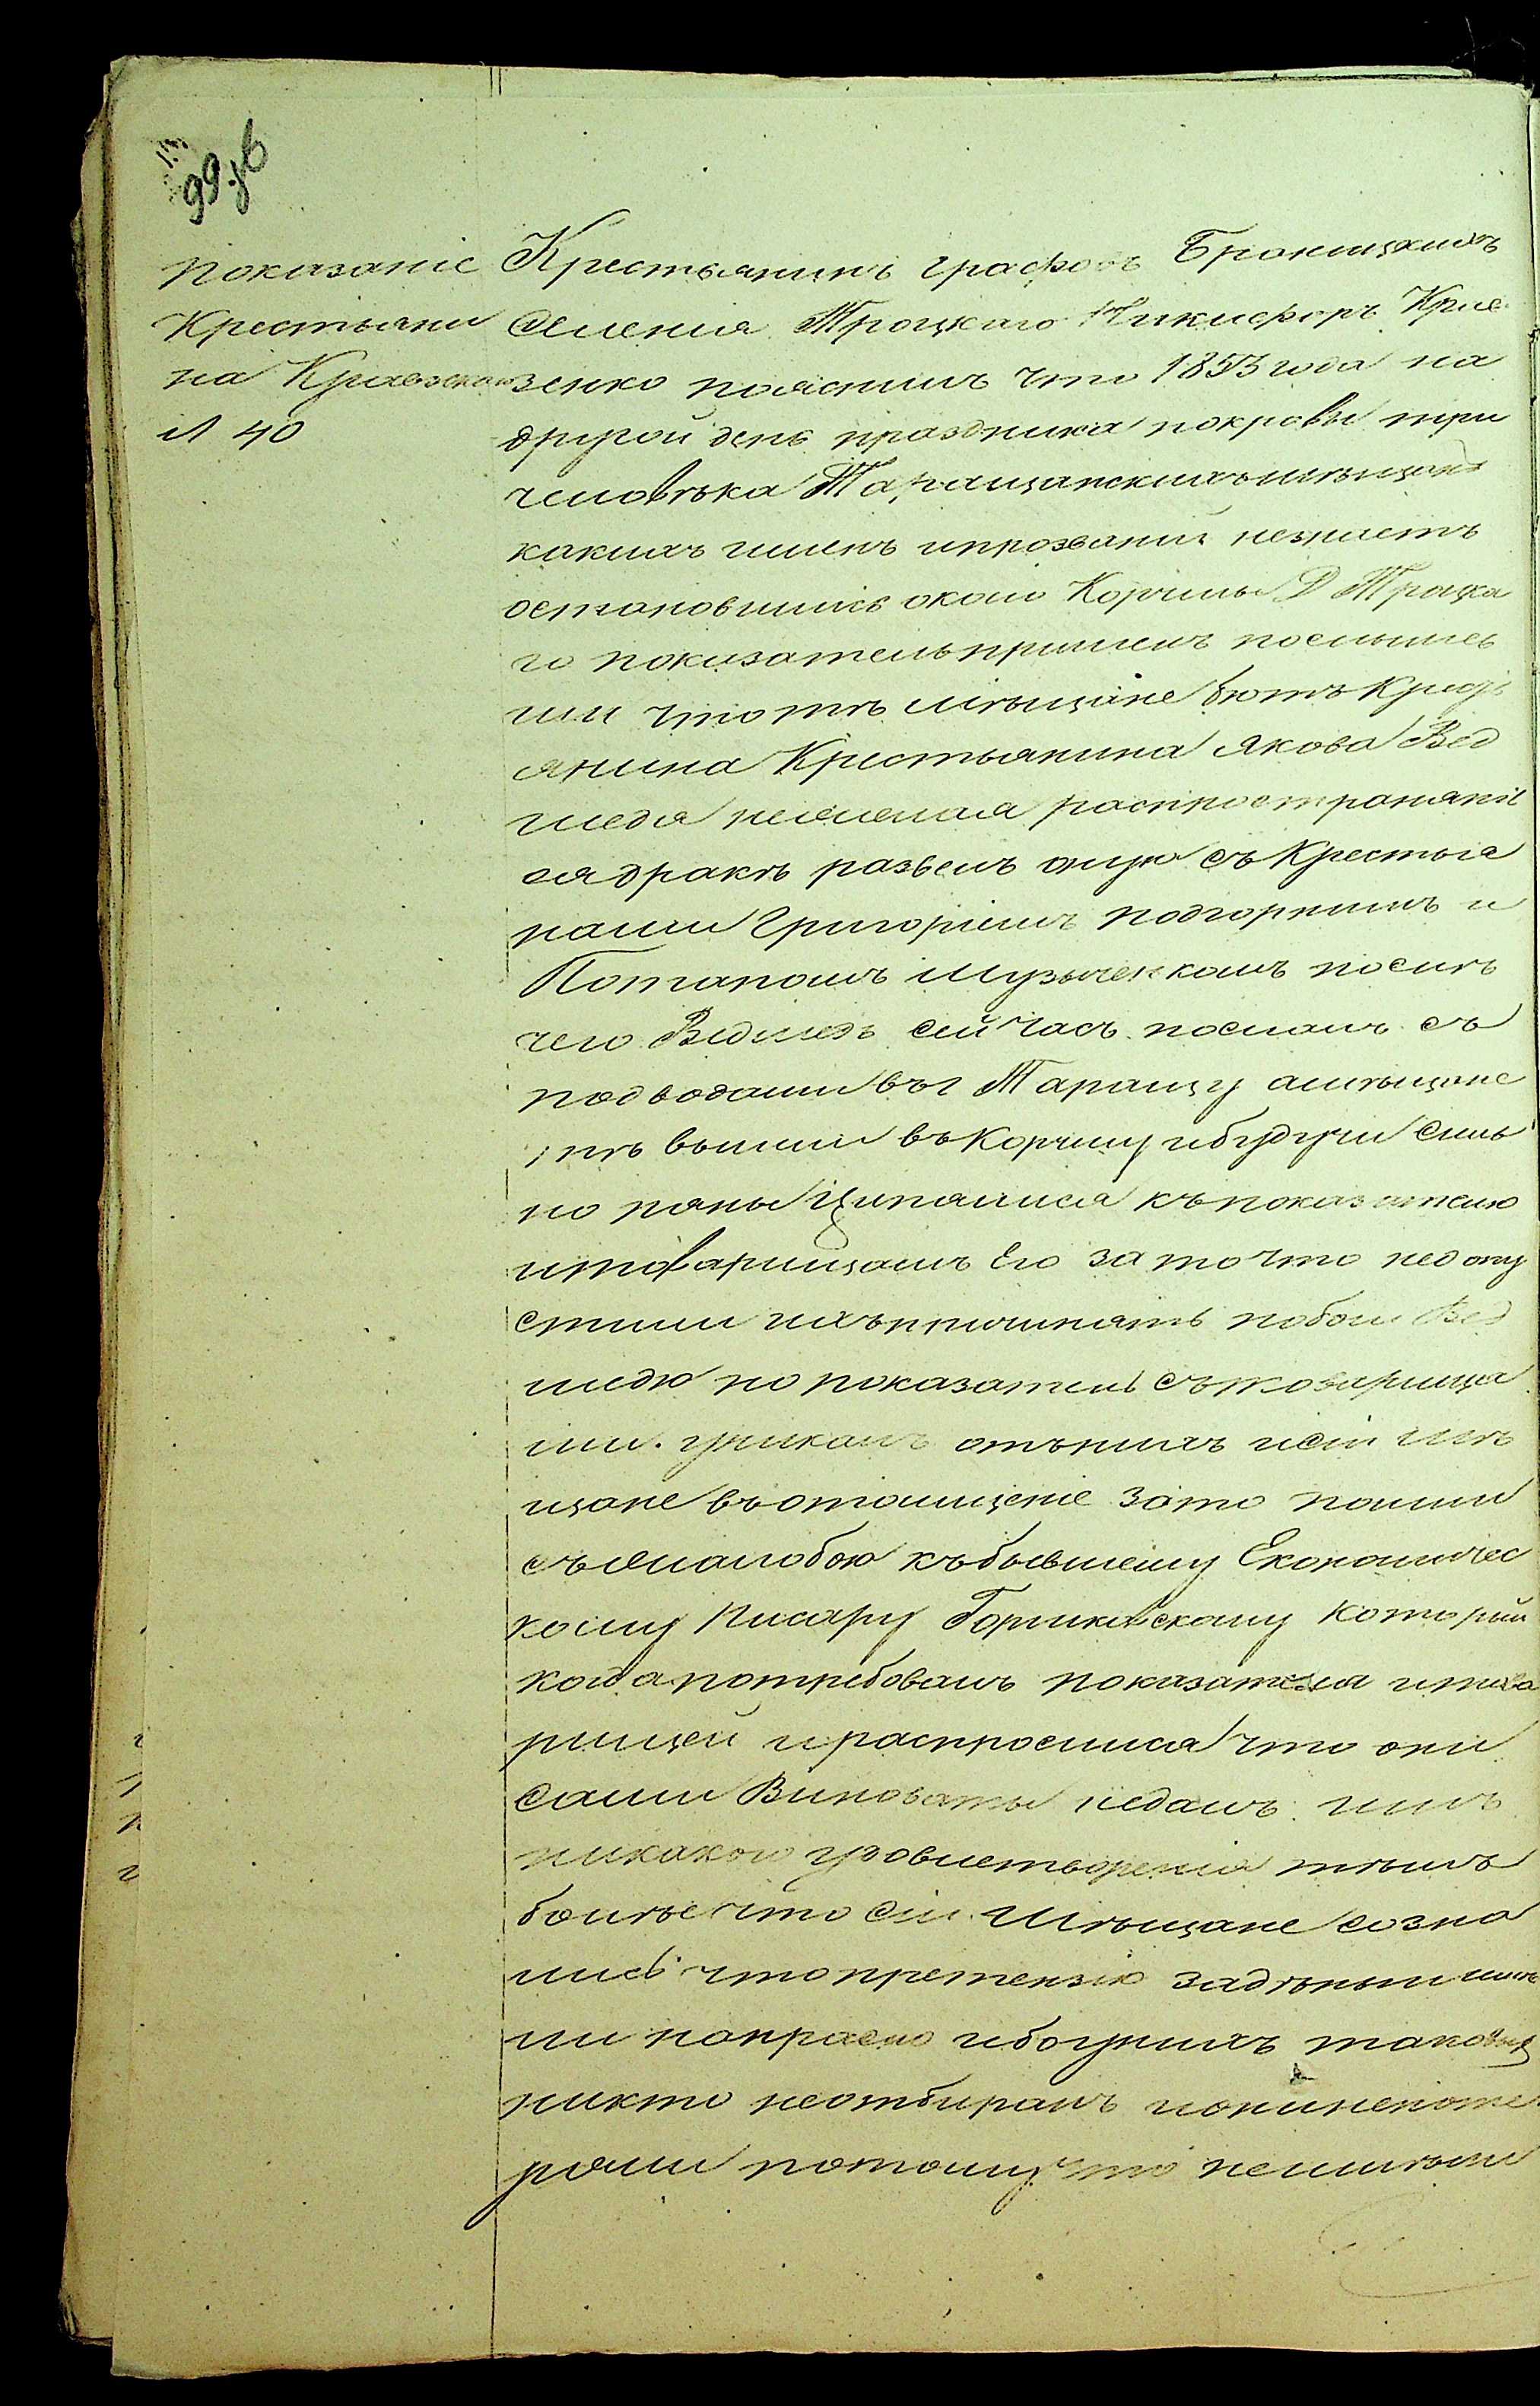 показаніе
Крестьяни
на Кривзенко
л 40
Крестьянинъ графовъ Браницкихъ
Селенія Троцкаго Никифоръ Крив
зенко пояснилъ что 1853 года на
другой день праздника покровы три
человѣка Таращанскихъ мѣщанъ
какихъ именъ и прозваній незнаетъ
остановились около Корчмы Д Троцка
го показатель пришелъ послышев
ши что тѣ мѣщане бютъ
янина Крестьянина Якова Вед
медя нежелая распространятся
ся дракѣ развелъ оную съ Крестья
нами Григоріемъ подгорнимъ и
Потапомъ Музыченкомъ послѣ
чего Ведмедь сей часъ посланъ съ
подводами въ г Таращу а мѣщане
тѣ вошли въ Корчму и будучи силь
но пяны Цинялися къ показателю
и товарищамъ Его за то что недопу
стили ихъ причинять побои Вед
медю но показатель съ товарища
ми уникалъ отъ нихъ и сіи мѣ
щане въ отомщеніе зато пошли
съ жалобою къ бывшему Економичес
кому Писару Горниковскому которій
когда потребовалъ показателя и това
рищей и распросился что они
сами Виноваты недалъ имъ
никакого удовлетворенія тѣмъ
болѣе что сіи Мѣщане созна
лись что претензію задѣныи
ли напрасно ибо у нихъ таковыхъ
никто неотбиралъ и они непоте
ряли потому что неимѣли